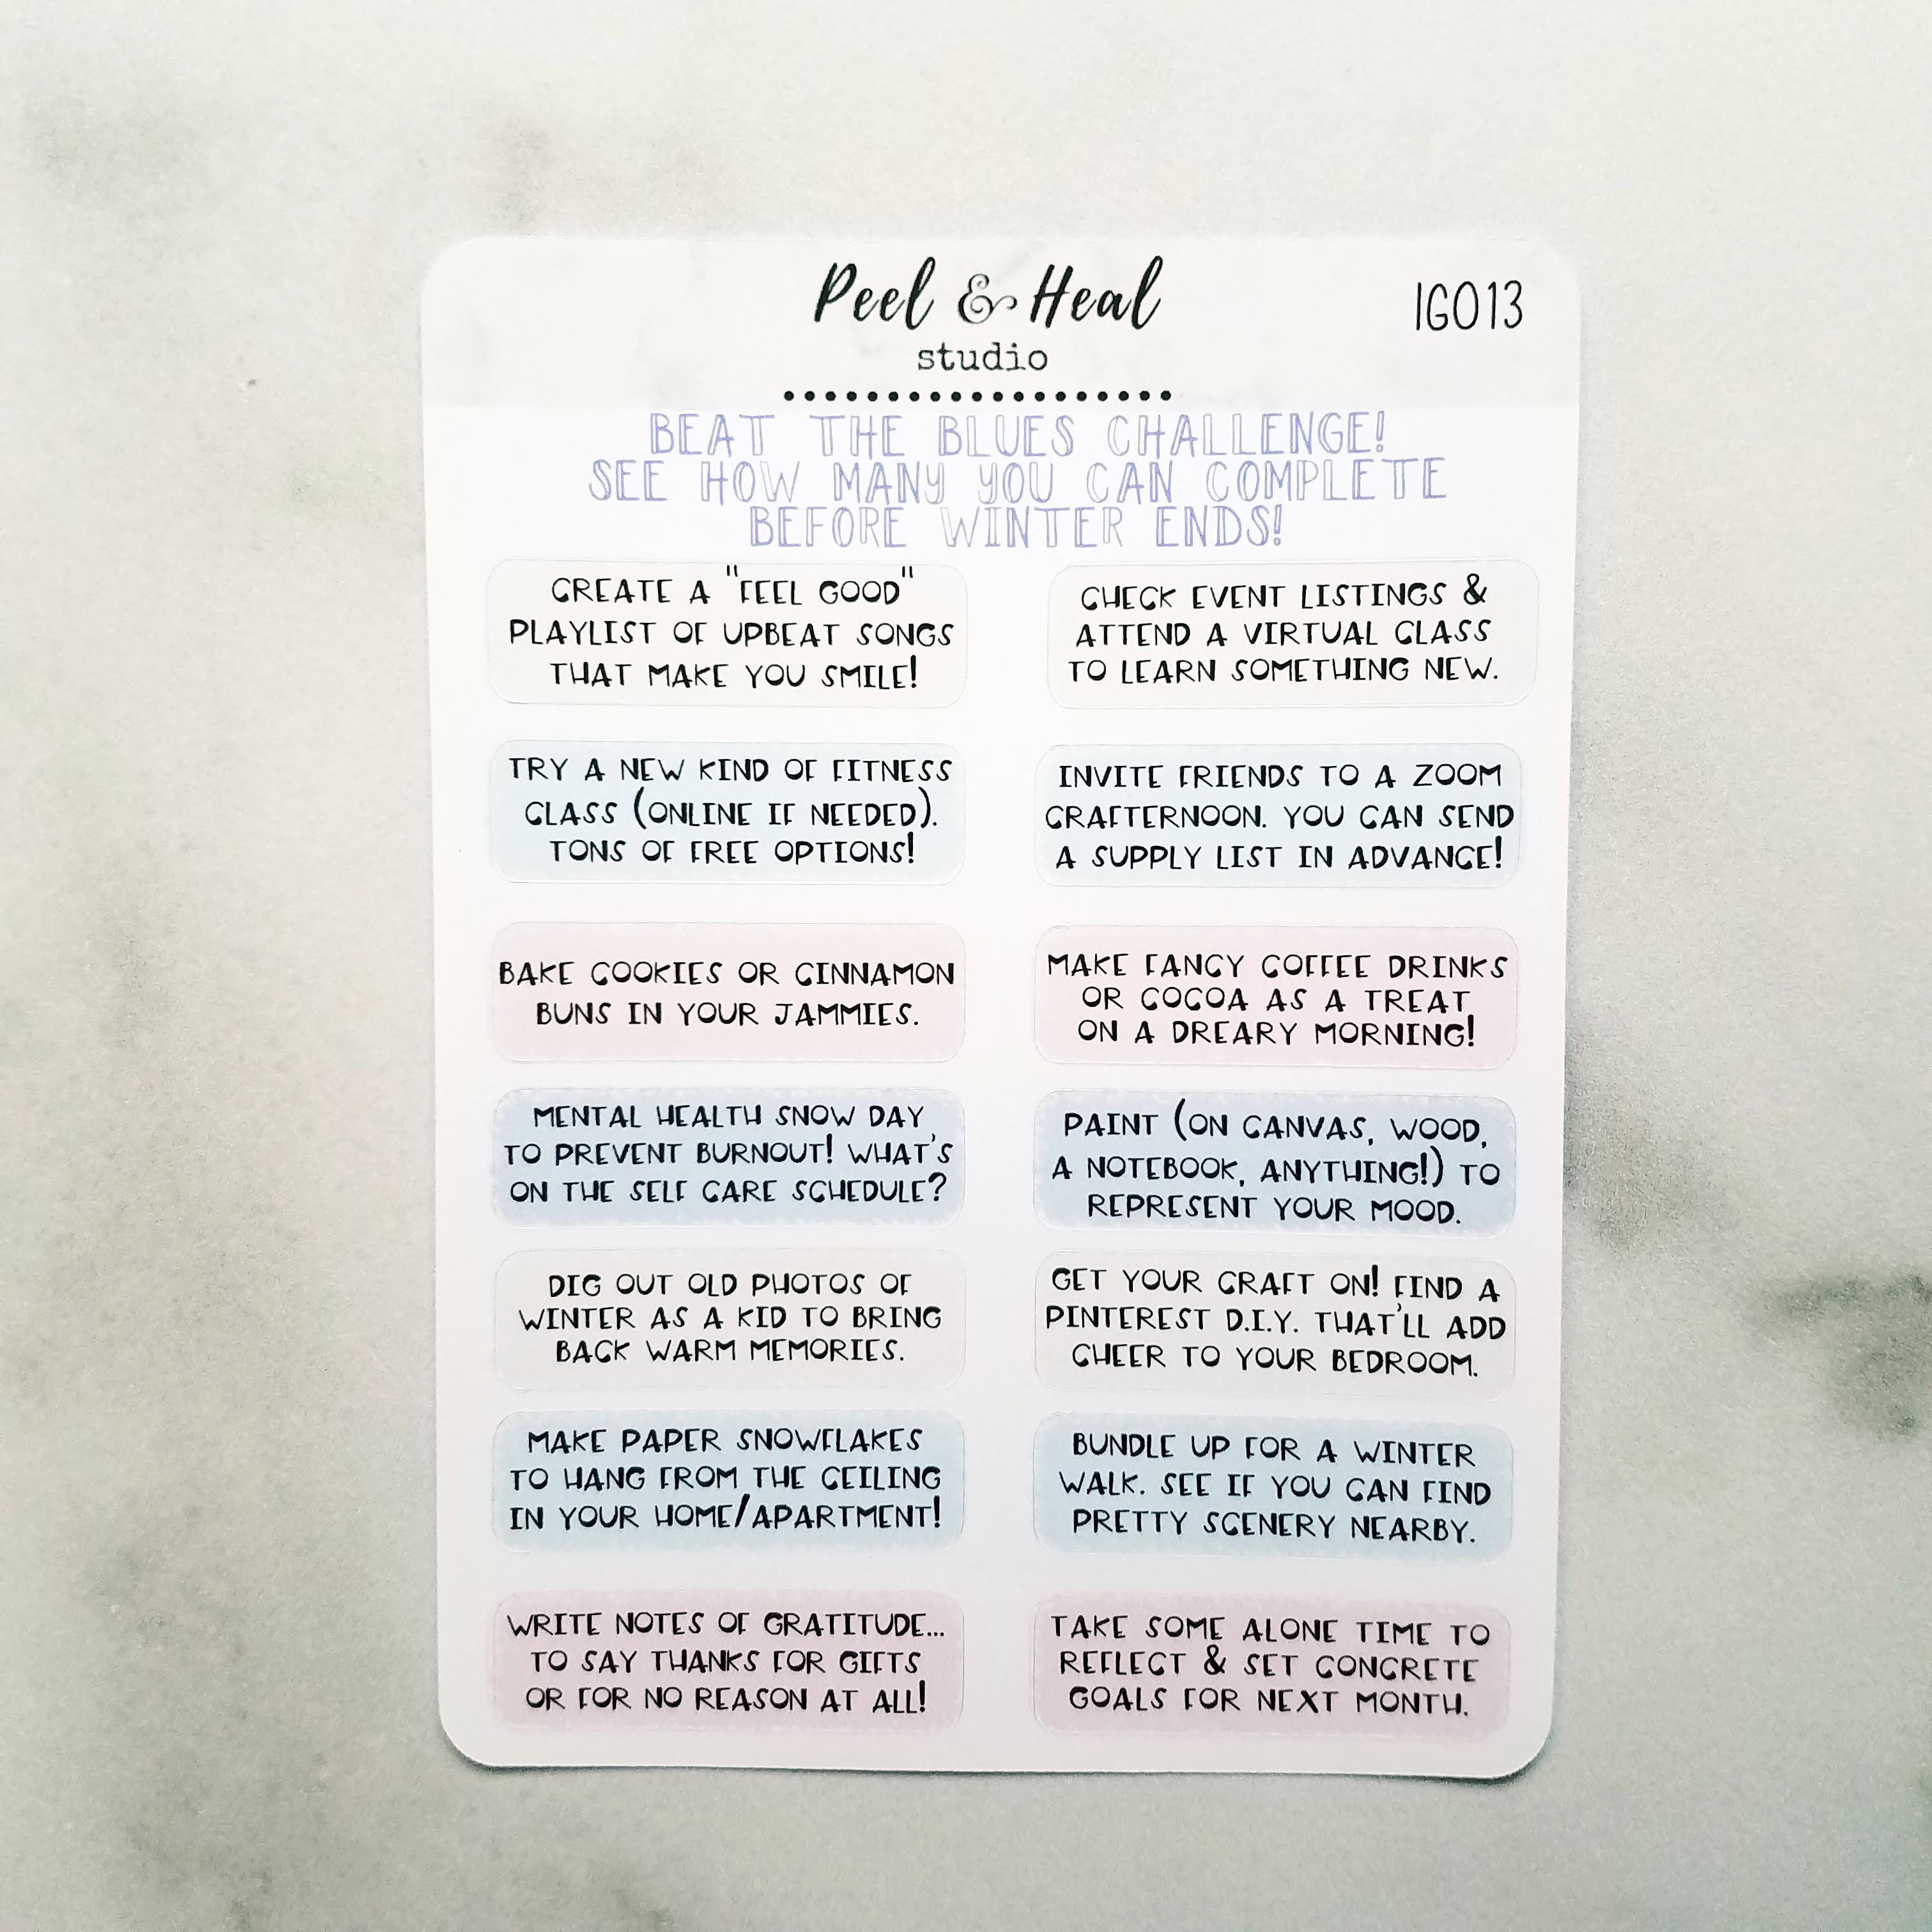 Peel & Heal
studio
IG013
BEAT THE BLUES CHALLENGE!
SEE HOW MANY YOU CAN COMPLETE
BEFORE WINTER ENDS!
CREATE A "FEEL GOOD"
PLAYLIST OF UPBEAT SONGS
THAT MAKE YOU SMILE!
CHECK EVENT LISTINGS &
ATTEND A VIRTUAL CLASS
TO LEARN SOMETHING NEW.
TRY A NEW KIND OF FITNESS
CLASS (ONLINE IF NEEDED).
TONS OF FREE OPTIONS!
INVITE FRIENDS TO A ZOOM
CRAFTERNOON. YOU CAN SEND
A SUPPLY LIST IN ADVANCE!
BAKE COOKIES OR CINNAMON
BUNS IN YOUR JAMMIES.
MAKE FANCY COFFEE DRINKS
OR COCOA AS A TREAT
ON A DREARY MORNING!
MENTAL HEALTH SNOW DAY
TO PREVENT BURNOUT! WHAT'S
ON THE SELF CARE SCHEDULE?
PAINT (ON CANVAS, WOOD,
A NOTEBOOK, ANYTHING!) TO
REPRESENT YOUR MOOD.
DIG OUT OLD PHOTOS OF
WINTER AS A KID TO BRING
BACK WARM MEMORIES.
GET YOUR CRAFT ON! FIND A
PINTEREST D.I.Y. THAT'LL ADD
CHEER TO YOUR BEDROOM.
MAKE PAPER SNOWFLAKES
TO HANG FROM THE CEILING
IN YOUR HOME/APARTMENT!
BUNDLE UP FOR A WINTER
WALK. SEE IF YOU CAN FIND
PRETTY SCENERY NEARBY.
WRITE NOTES OF GRATITUDE...
TO SAY THANKS FOR GIFTS
OR FOR NO REASON AT ALL!
TAKE SOME ALONE TIME TO
REFLECT & SET CONCRETE
GOALS FOR NEXT MONTH.